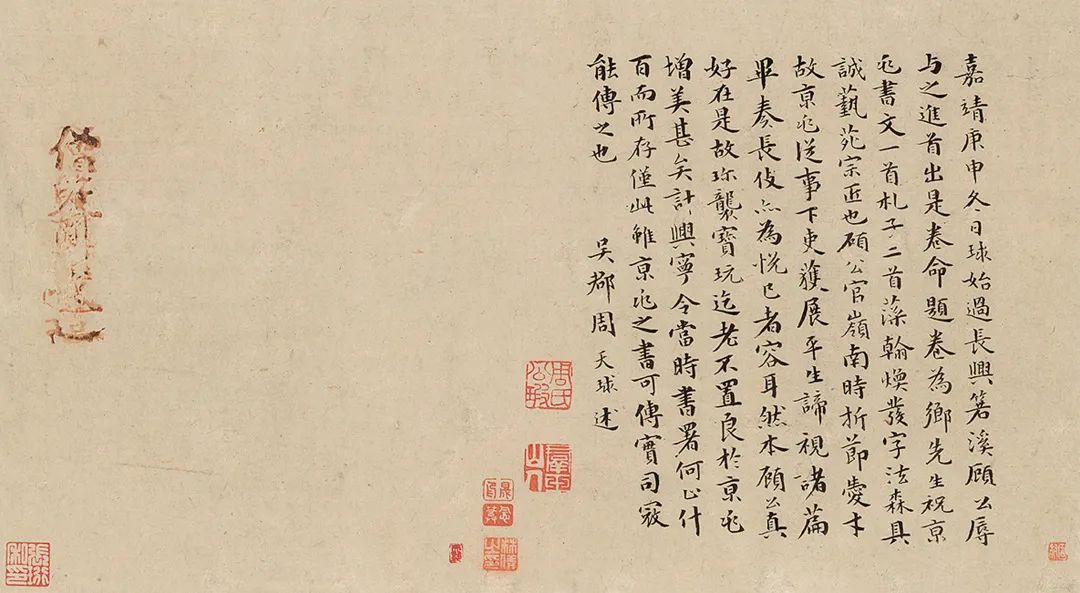 嘉靖庚申冬日球始過長興箬溪顧公辱
与之進首出是卷命題卷為鄉先生祝京
兆書文一首札子二首藻翰煥發字法森具
誠藝苑宗匠也顧公官嶺南時折節愛才
故京兆從事下吏獲展平生諦視諸篇
畢奏長伎亦為悅己者容耳然本顧公真
好在是故珎襲寶玩迄老不置良於京兆
增美甚矣計興寧令當時書署何止什
百而所存僅此雖京兆之書可傳實司寇
能傳之也
吳郡周天球述
周氏公瑕
群玉山人